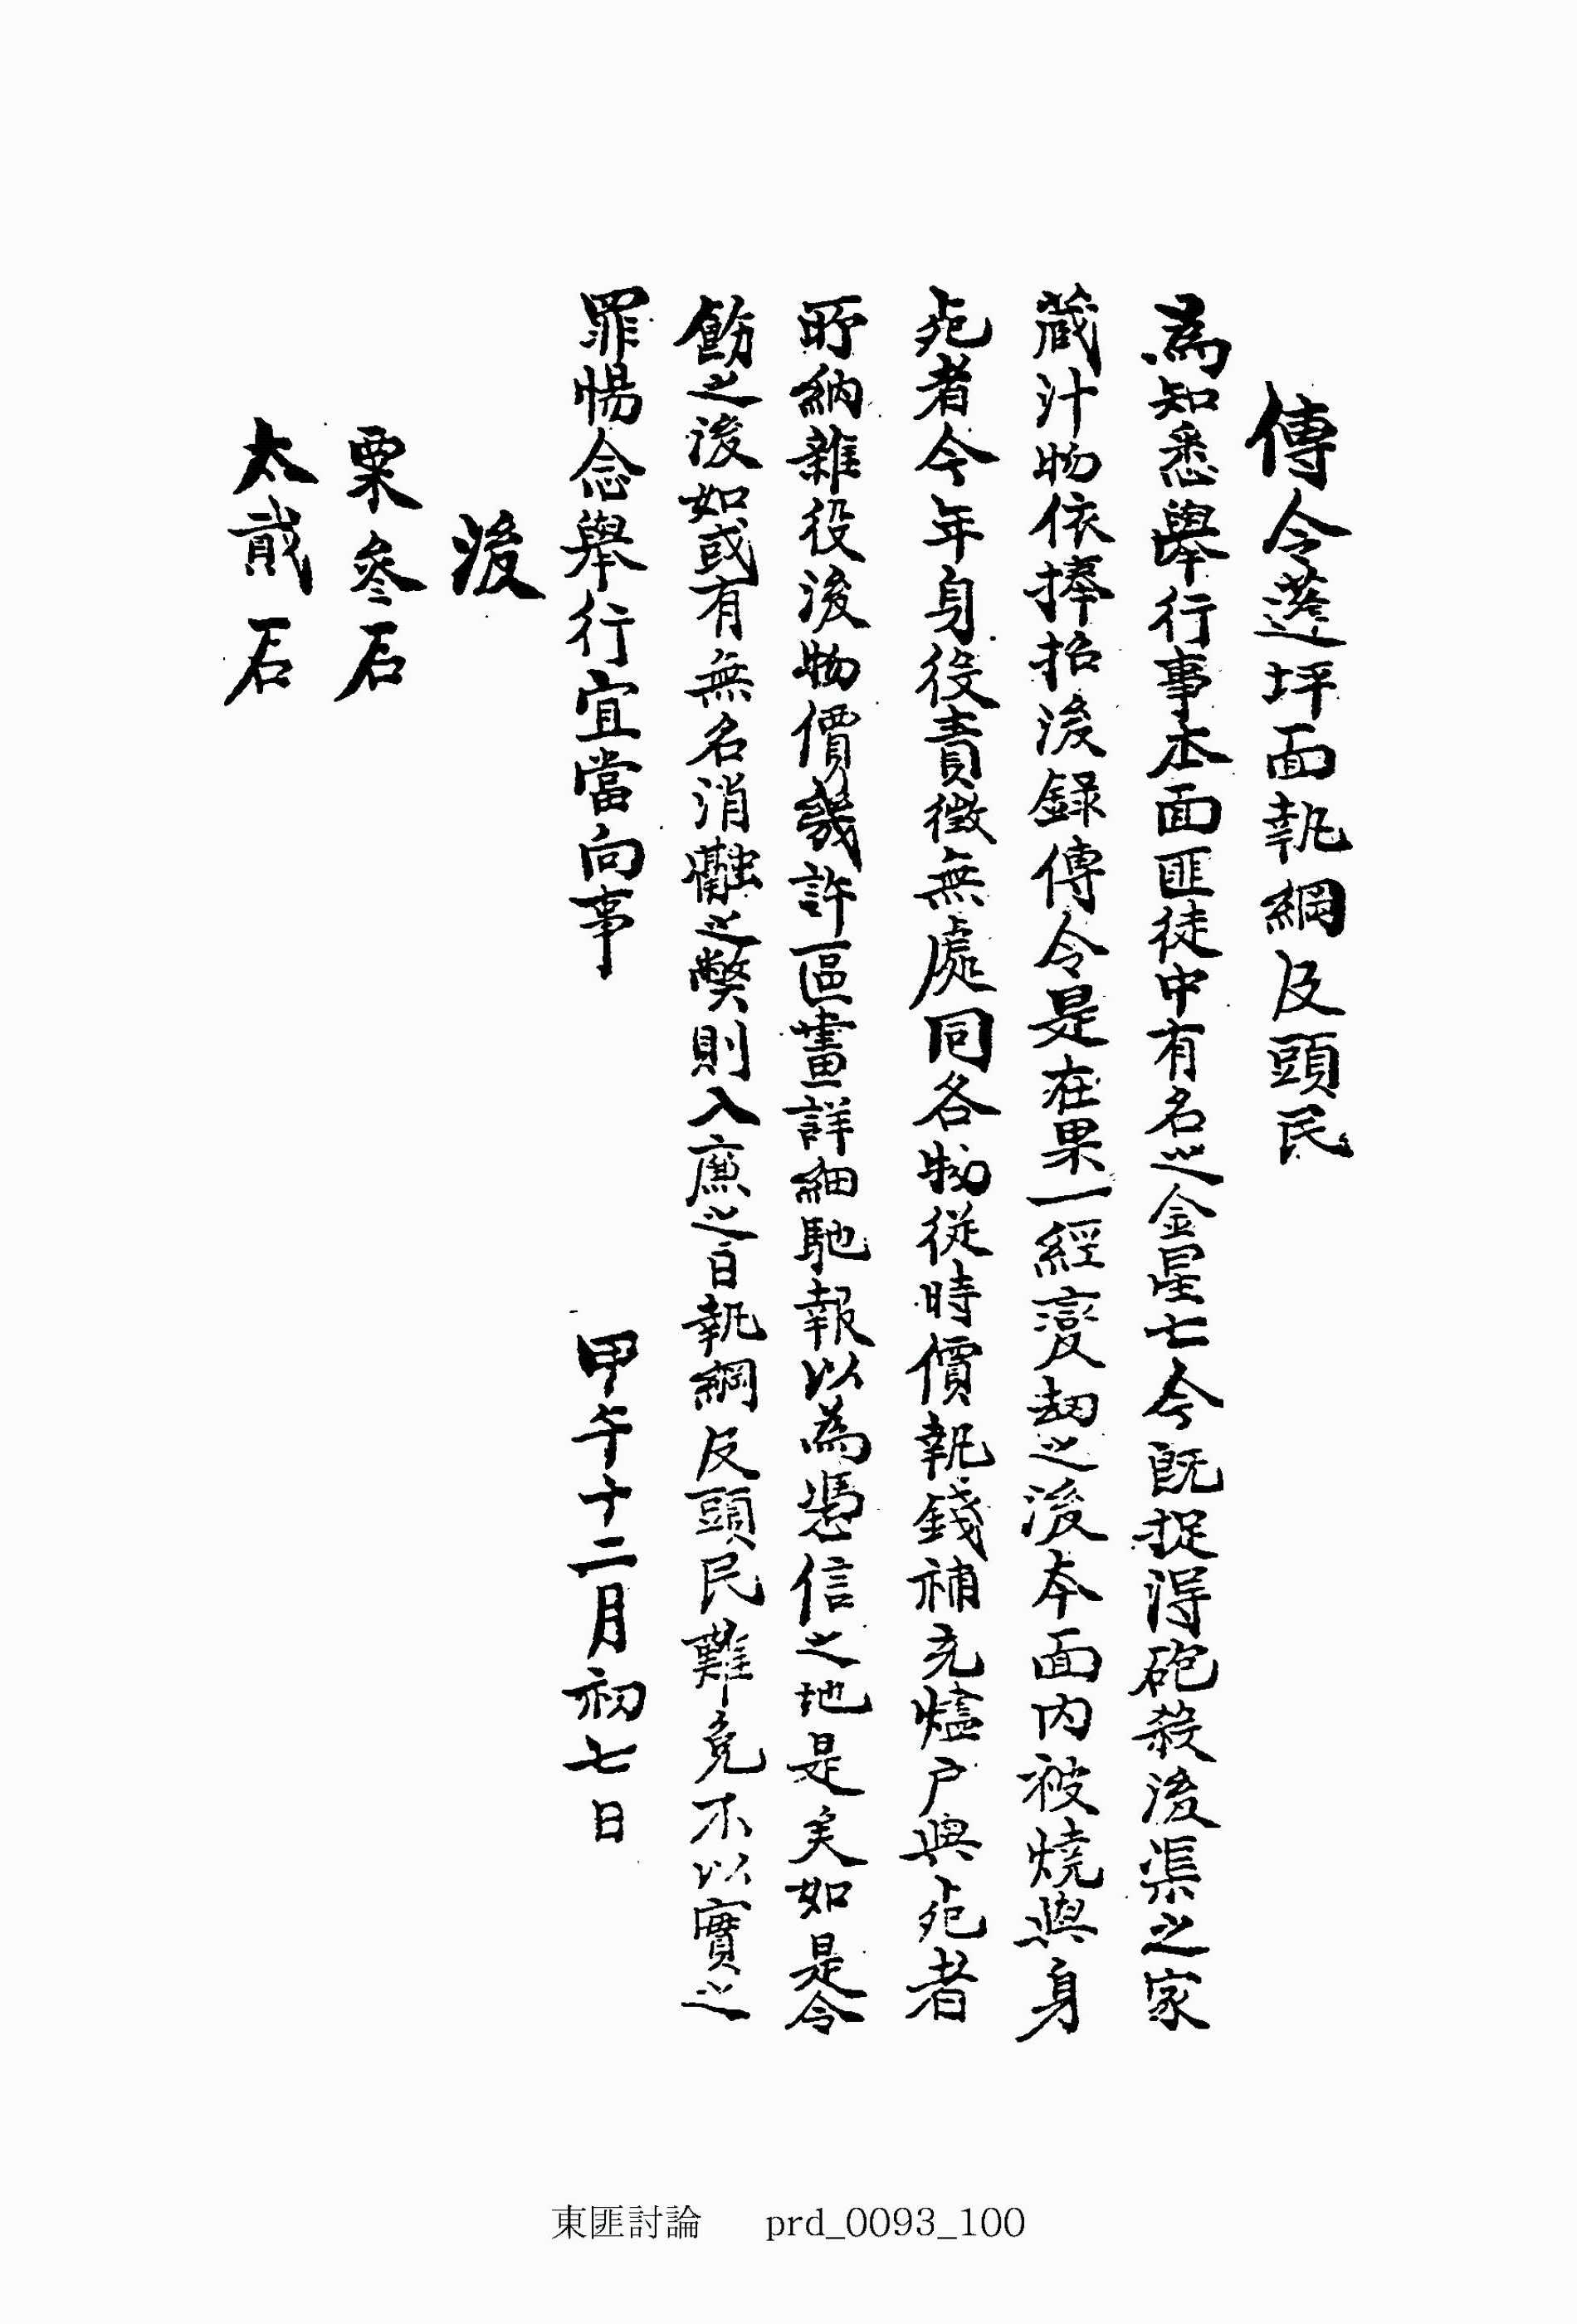 傳令蓬坪面執綱及頭民
爲知悉擧行事本面匪徒中有名之金星七今旣捉得砲殺後渠之家
藏汁物依捧招後錄傳令是在果一經變劫之後本面内被燒與身
死者今年身役責徵無處同各物從時價執錢補充燼戶與死者
所納雜役後物價幾許區畫詳細馳報以爲憑信之地是矣如是令
飭之後如或有無名消融之弊則入廉之日執綱及頭民難免不以實之
罪惕念擧行宜當向事 甲午十二月初七日
後
粟叄石
太貳石
東匪討論 prd_0093_100